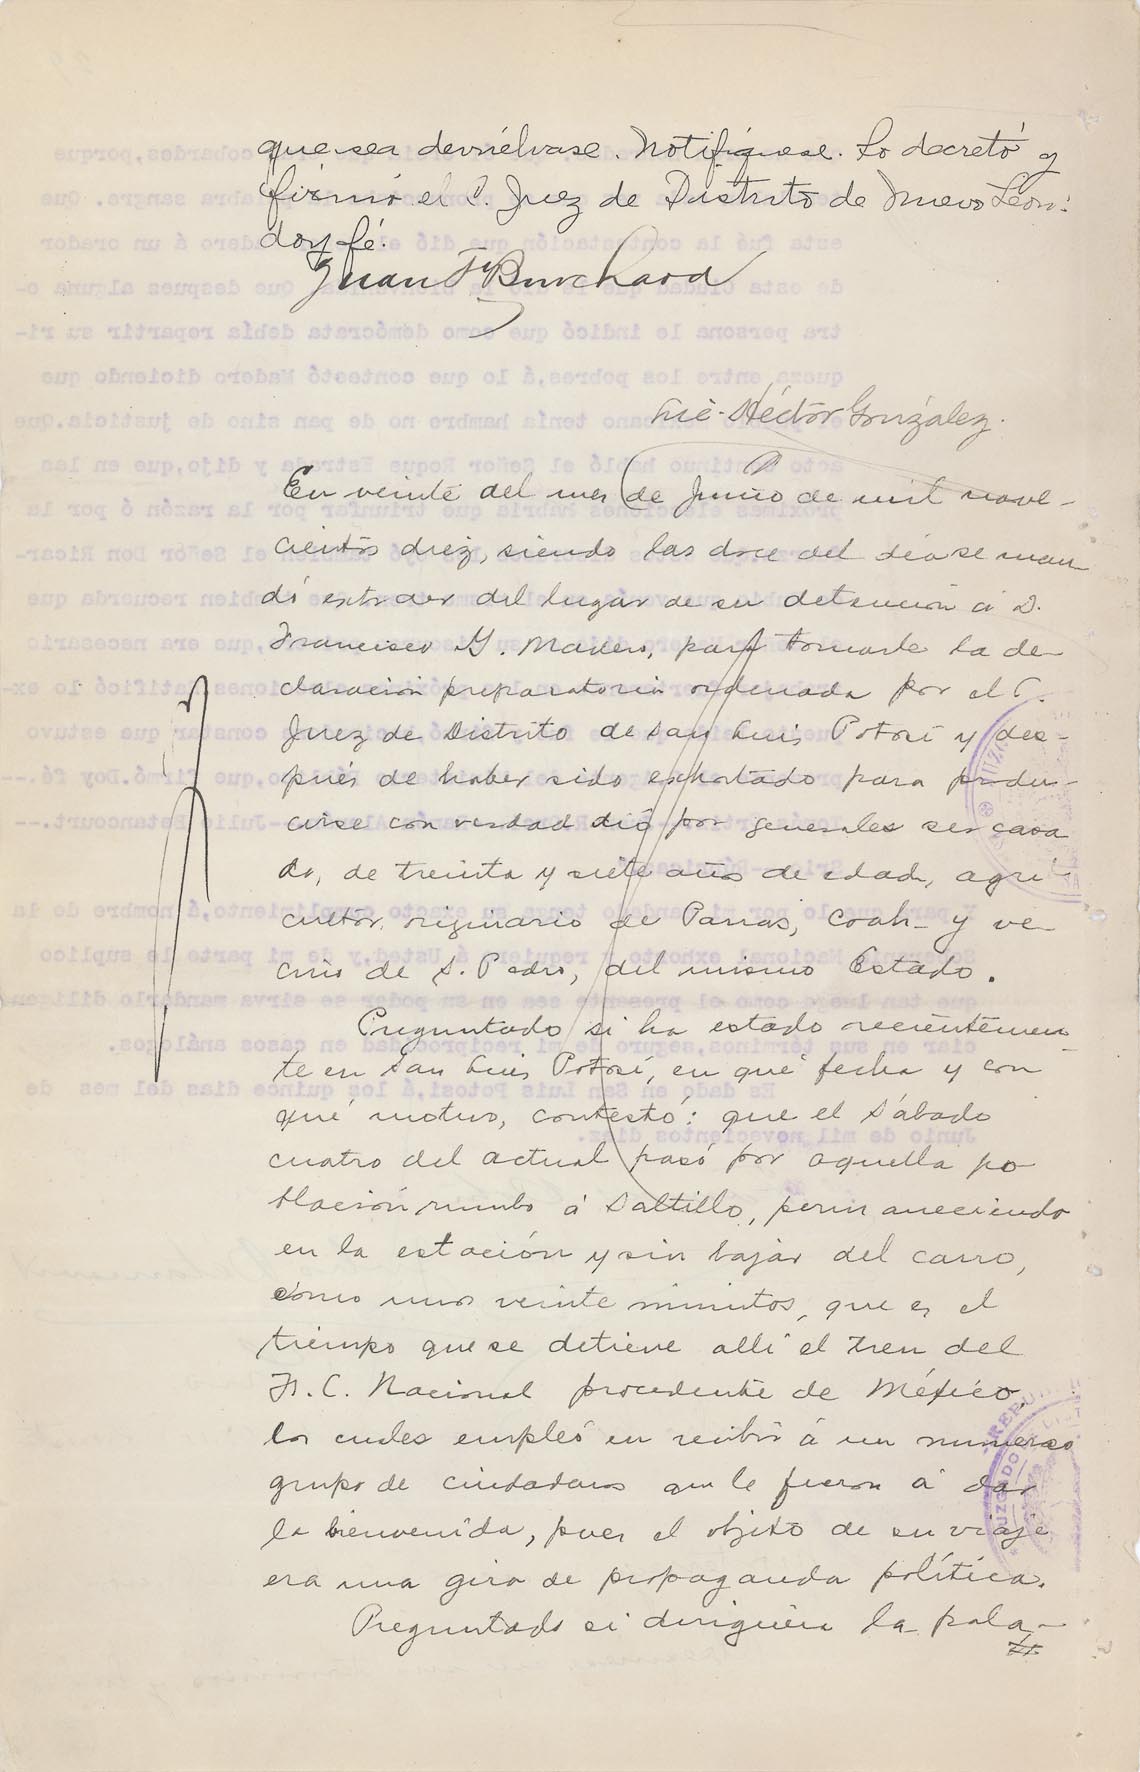 que sea devuélvase. Notifíquese. Lo decretó y
firmó el C. Juez de Distrito de Nuevo León:
doy fé.
Juan F Burchard
Lic. Héctor González.
En veinte del mes de Junio de mil nove-
cientos diez, siendo las doce del día se man-
dó extraer del lugar de su detención á D.
Francisco Y. Madero, para tomarle la de-
claración preparatoria ordenada por el C.
Juez de Distrito de San Luis Potosí y des-
pués de haber sido exhortado para produ-
cirse con verdad dió por generales ser casa
do, de treinta y siete años de edad, agri-
cultor, originario de Parras, Coah- y ve-
cino de S. Pedro, del mismo Estado.
Preguntado si ha estado recientemen-
te en San Luis Potosí, en qué fecha y con
qué motivo, contestó: que el Sábado
cuatro del actual pasó por aquella po-
blación rumbo á Saltillo, permaneciendo
en la estación y sin bajar del carro,
como unos veinte minutos, que es el
tiempo que se detiene allí el tren del
F. C. Nacional procedente de México,
los cuales empleó en recibir á un numeroso
grupo de ciudadanos que le fueron á dar
la bienvenida, pues el objeto de su viaje
era una gira de propaganda política.
Preguntado si dirigiera la pala-